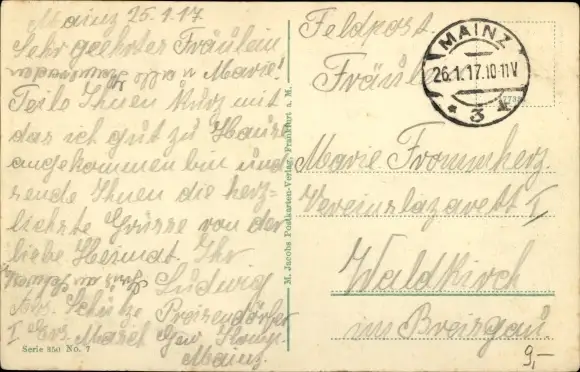 Mainz 25.1.17
Sehr geehrtes Fräulein
Marie!
Teile Ihnen kurz mit
das ich gut zu Hause
angekommen bin und
sende Ihnen die herz-
lichste Grüsse von der
liebe Heimat. Ihr
Ludwig
Abs. Schütze
I Ers. Masch Gew
Mainz.
Serie 350 No. 7
M. Jacobs Postkarten-Verlag, Frankfurt a. M.
Feldpost.
MAINZ
26.1.17.10-11V
* 3 *
Marie Frommherz
Vereinslazarett I
Waldkirch
im Breisgau.
9,-